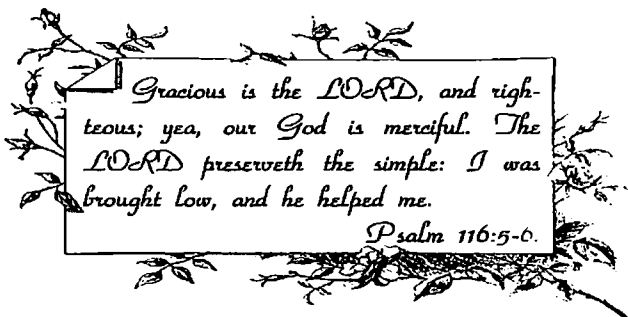 Gracious is the LORD, and righ-
teous; yea, our God is merciful. The
LORD preserveth the simple: I was
brought low, and he helped me.
Psalm 116:5-6.